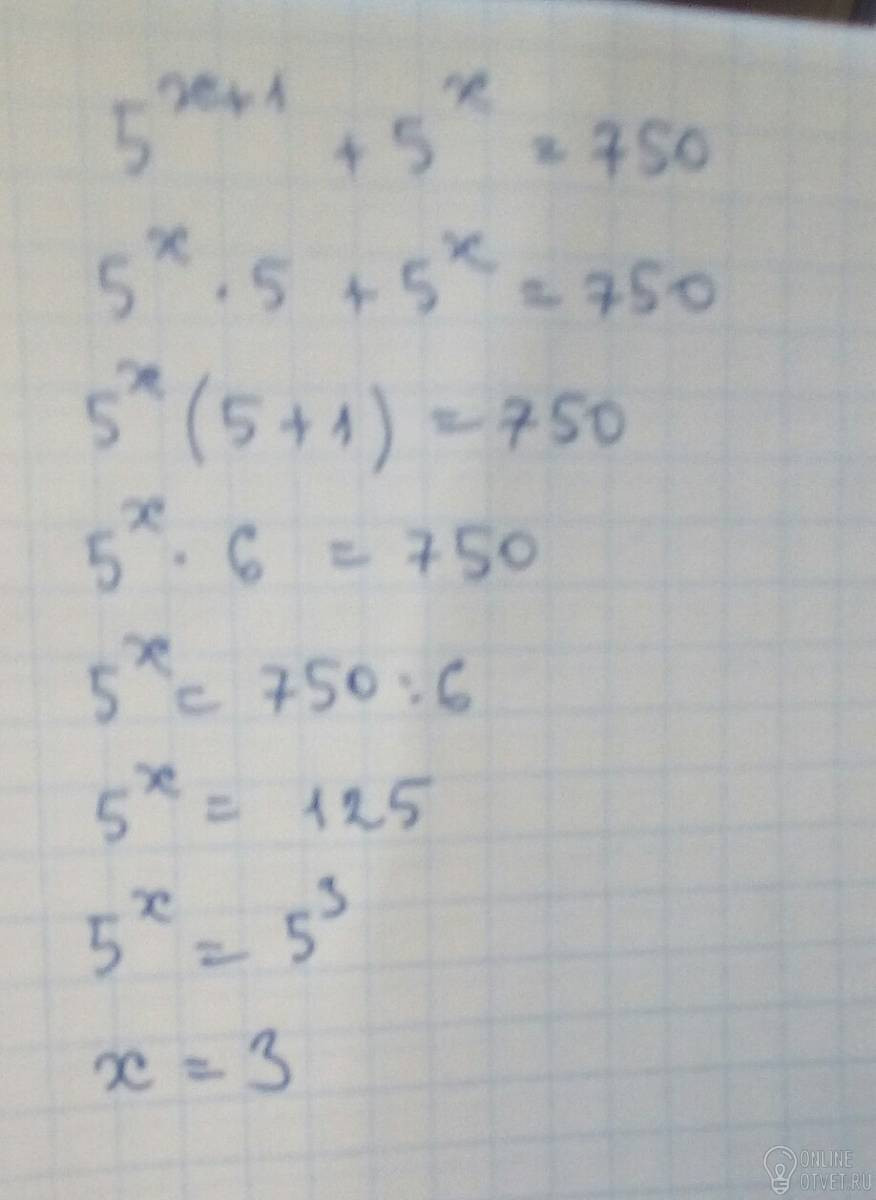 5^{x+1} + 5^x = 750
5^x · 5 + 5^x = 750
5^x (5 + 1) = 750
5^x · 6 = 750
5^x = 750 : 6
5^x = 125
5^x = 5^3
x = 3
ONLINE
OTVET.RU